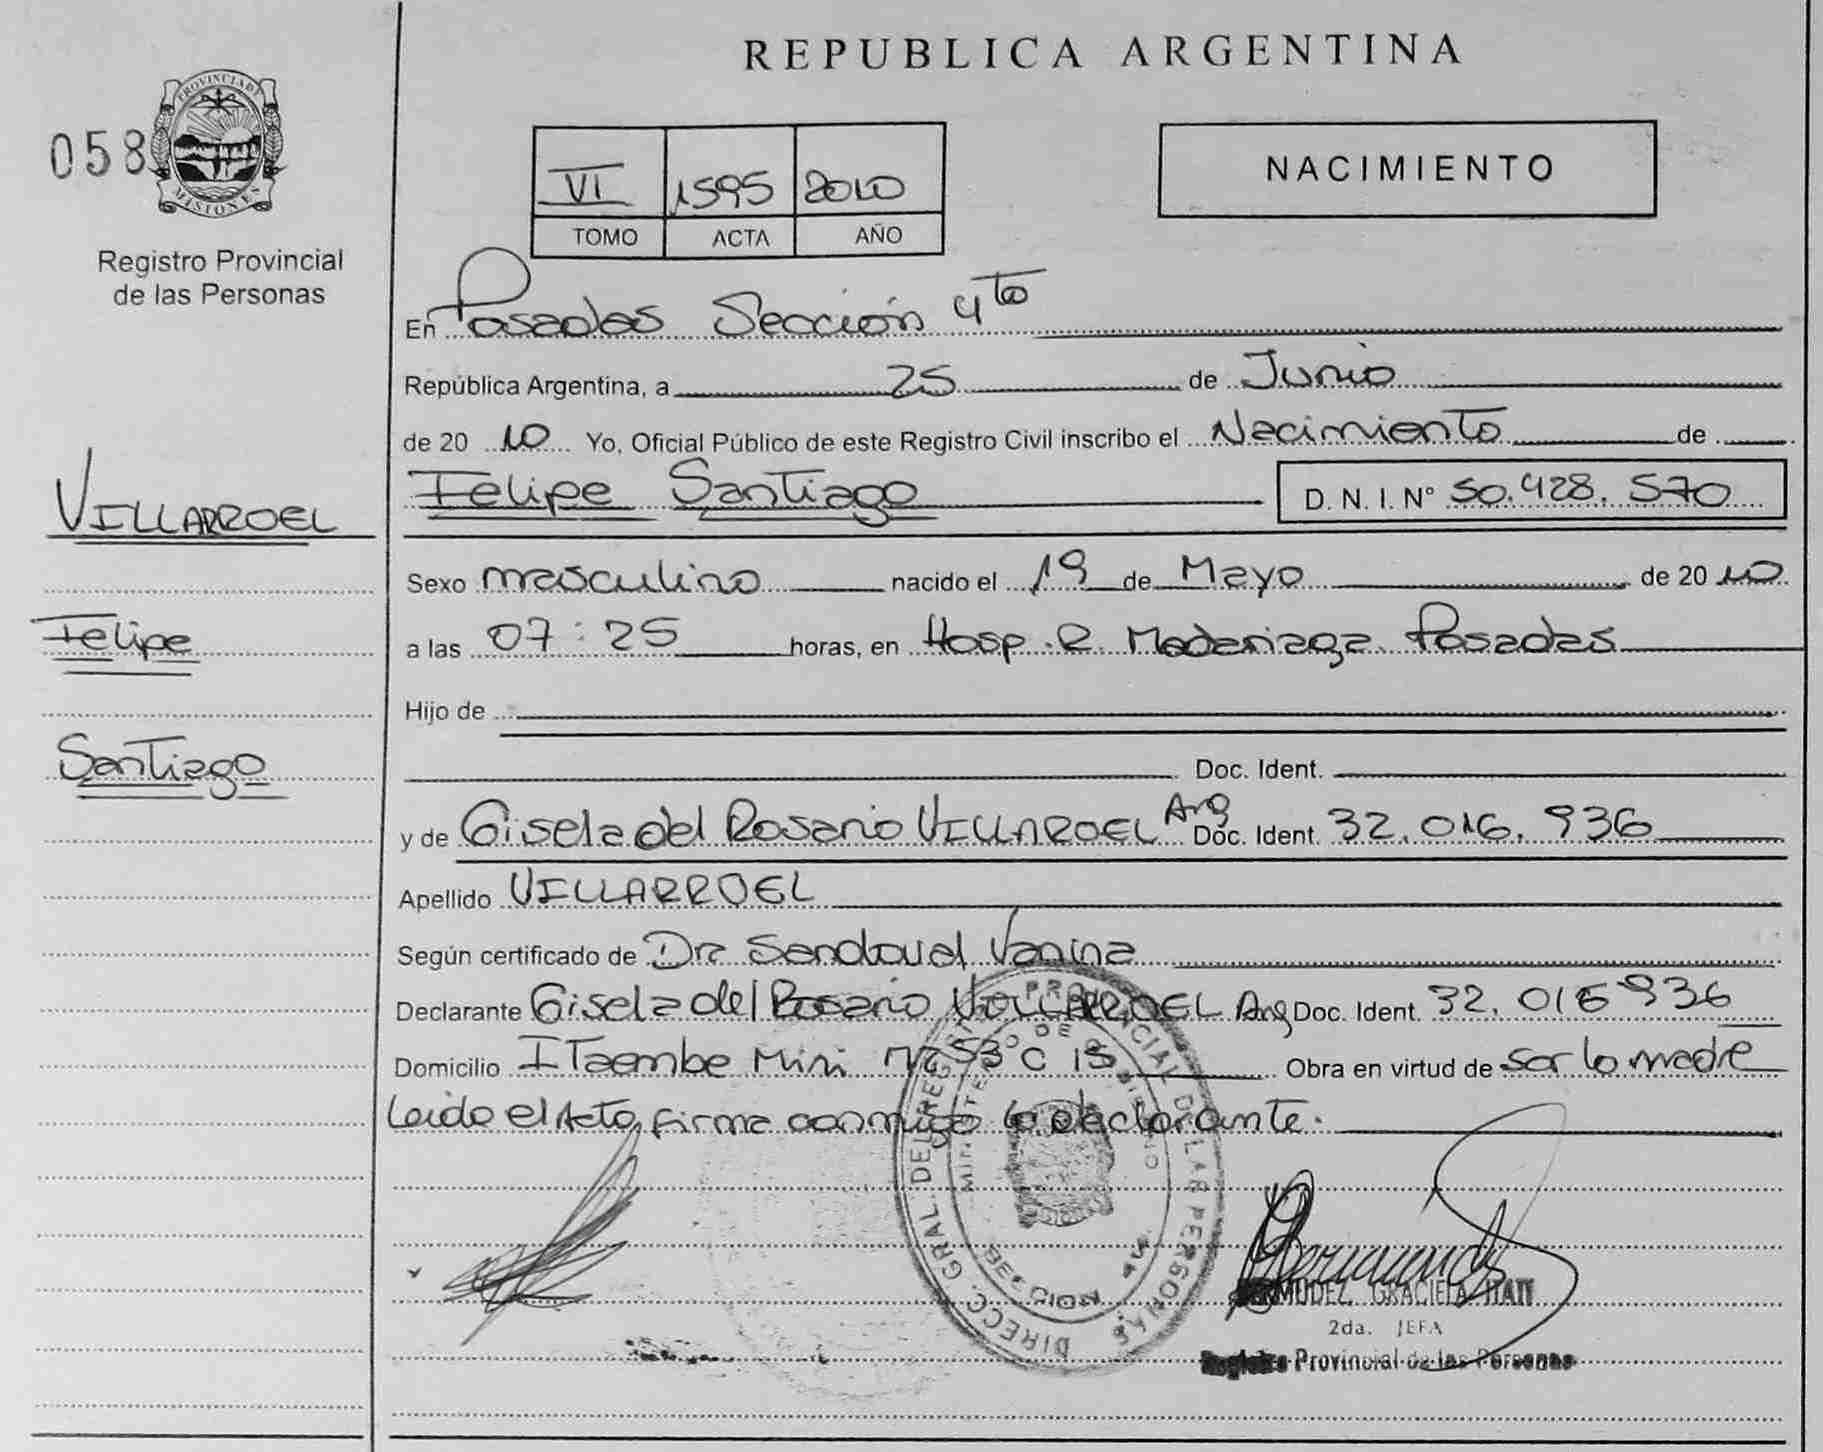 REPUBLICA ARGENTINA
058
PROVINCIA DE
MISIONES
Registro Provincial
de las Personas
VI 1595 2010
TOMO ACTA AÑO
NACIMIENTO
En Posadas Sección 4ta
República Argentina, a 25 de Junio
de 20 10 Yo, Oficial Público de este Registro Civil inscribo el Nacimiento de
Felipe Santiago D. N. I. N° 50.428.570
VILLARROEL
Felipe
Santiago
Sexo masculino nacido el 19 de Mayo de 20 10
a las 07:25 horas, en Hosp. R. Madariaga Posadas
Hijo de
Doc. Ident.
y de Gisela del Rosario VILLAROEL Arg Doc. Ident. 32.016.936
Apellido VILLARROEL
Según certificado de Dra Sandoval Vanina
Declarante Gisela del Rosario VILLARROEL Arg Doc. Ident. 32.016 936
Domicilio ITaembe Mini Mz 53 C 15 Obra en virtud de ser la madre
Leido el Acta, firma conmigo la declarante.
DIRECC. GRAL. DEL REGISTRO PROVINCIAL DE LAS PERSONAS
MINISTERIO DE GOBIERNO
BERMUDEZ, GRACIELA ITATI
2da. JEFA
Registro Provincial de las Personas